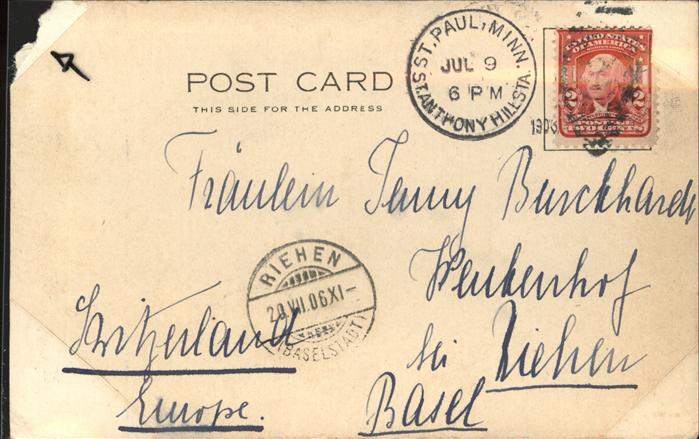 POST CARD
THIS SIDE FOR THE ADDRESS
ST. PAUL, MINN.
JUL 9
6 PM
ST. ANTHONY HILL STA.
1906
UNITED STATES
OF AMERICA
2 2
POSTAGE
TWO CENTS
Fräulein Jenny Burckhardt
Wenkenhof
bei Riehen
Basel
Switzerland
Europe.
RIEHEN
20.VII.06.XI-
(BASELSTADT)